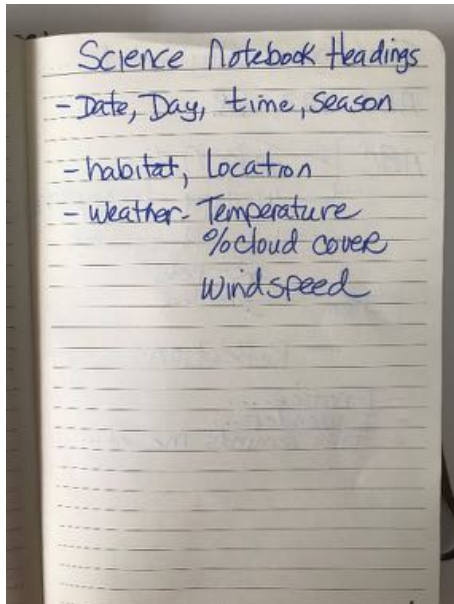 Science Notebook Headings
- Date, Day, time, season
- habitat, Location
- weather - Temperature
% cloud cover
windspeed